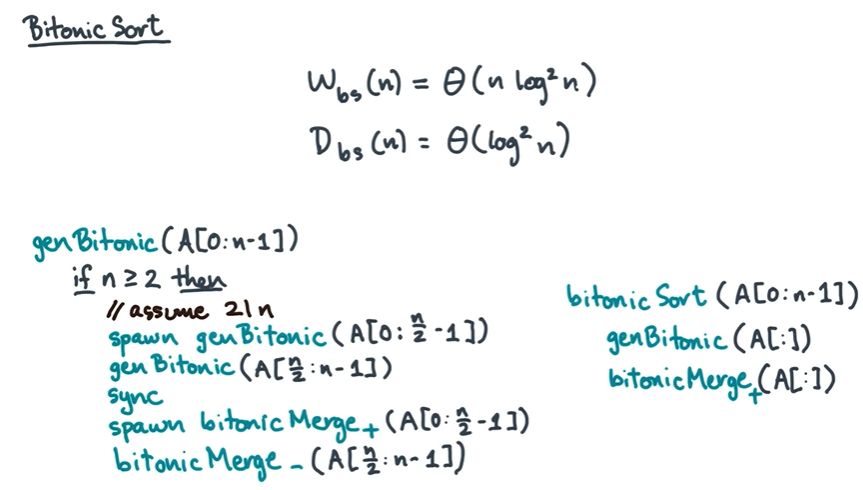 Bitonic Sort
W_bs(n) = Θ(n log² n)
D_bs(n) = Θ(log² n)
genBitonic(A[0:n-1])
if n ≥ 2 then
// assume 2|n
spawn genBitonic(A[0:n/2-1])
genBitonic(A[n/2:n-1])
sync
spawn bitonicMerge+(A[0:n/2-1])
bitonicMerge-(A[n/2:n-1])
bitonicSort(A[0:n-1])
genBitonic(A[:])
bitonicMerge+(A[:])